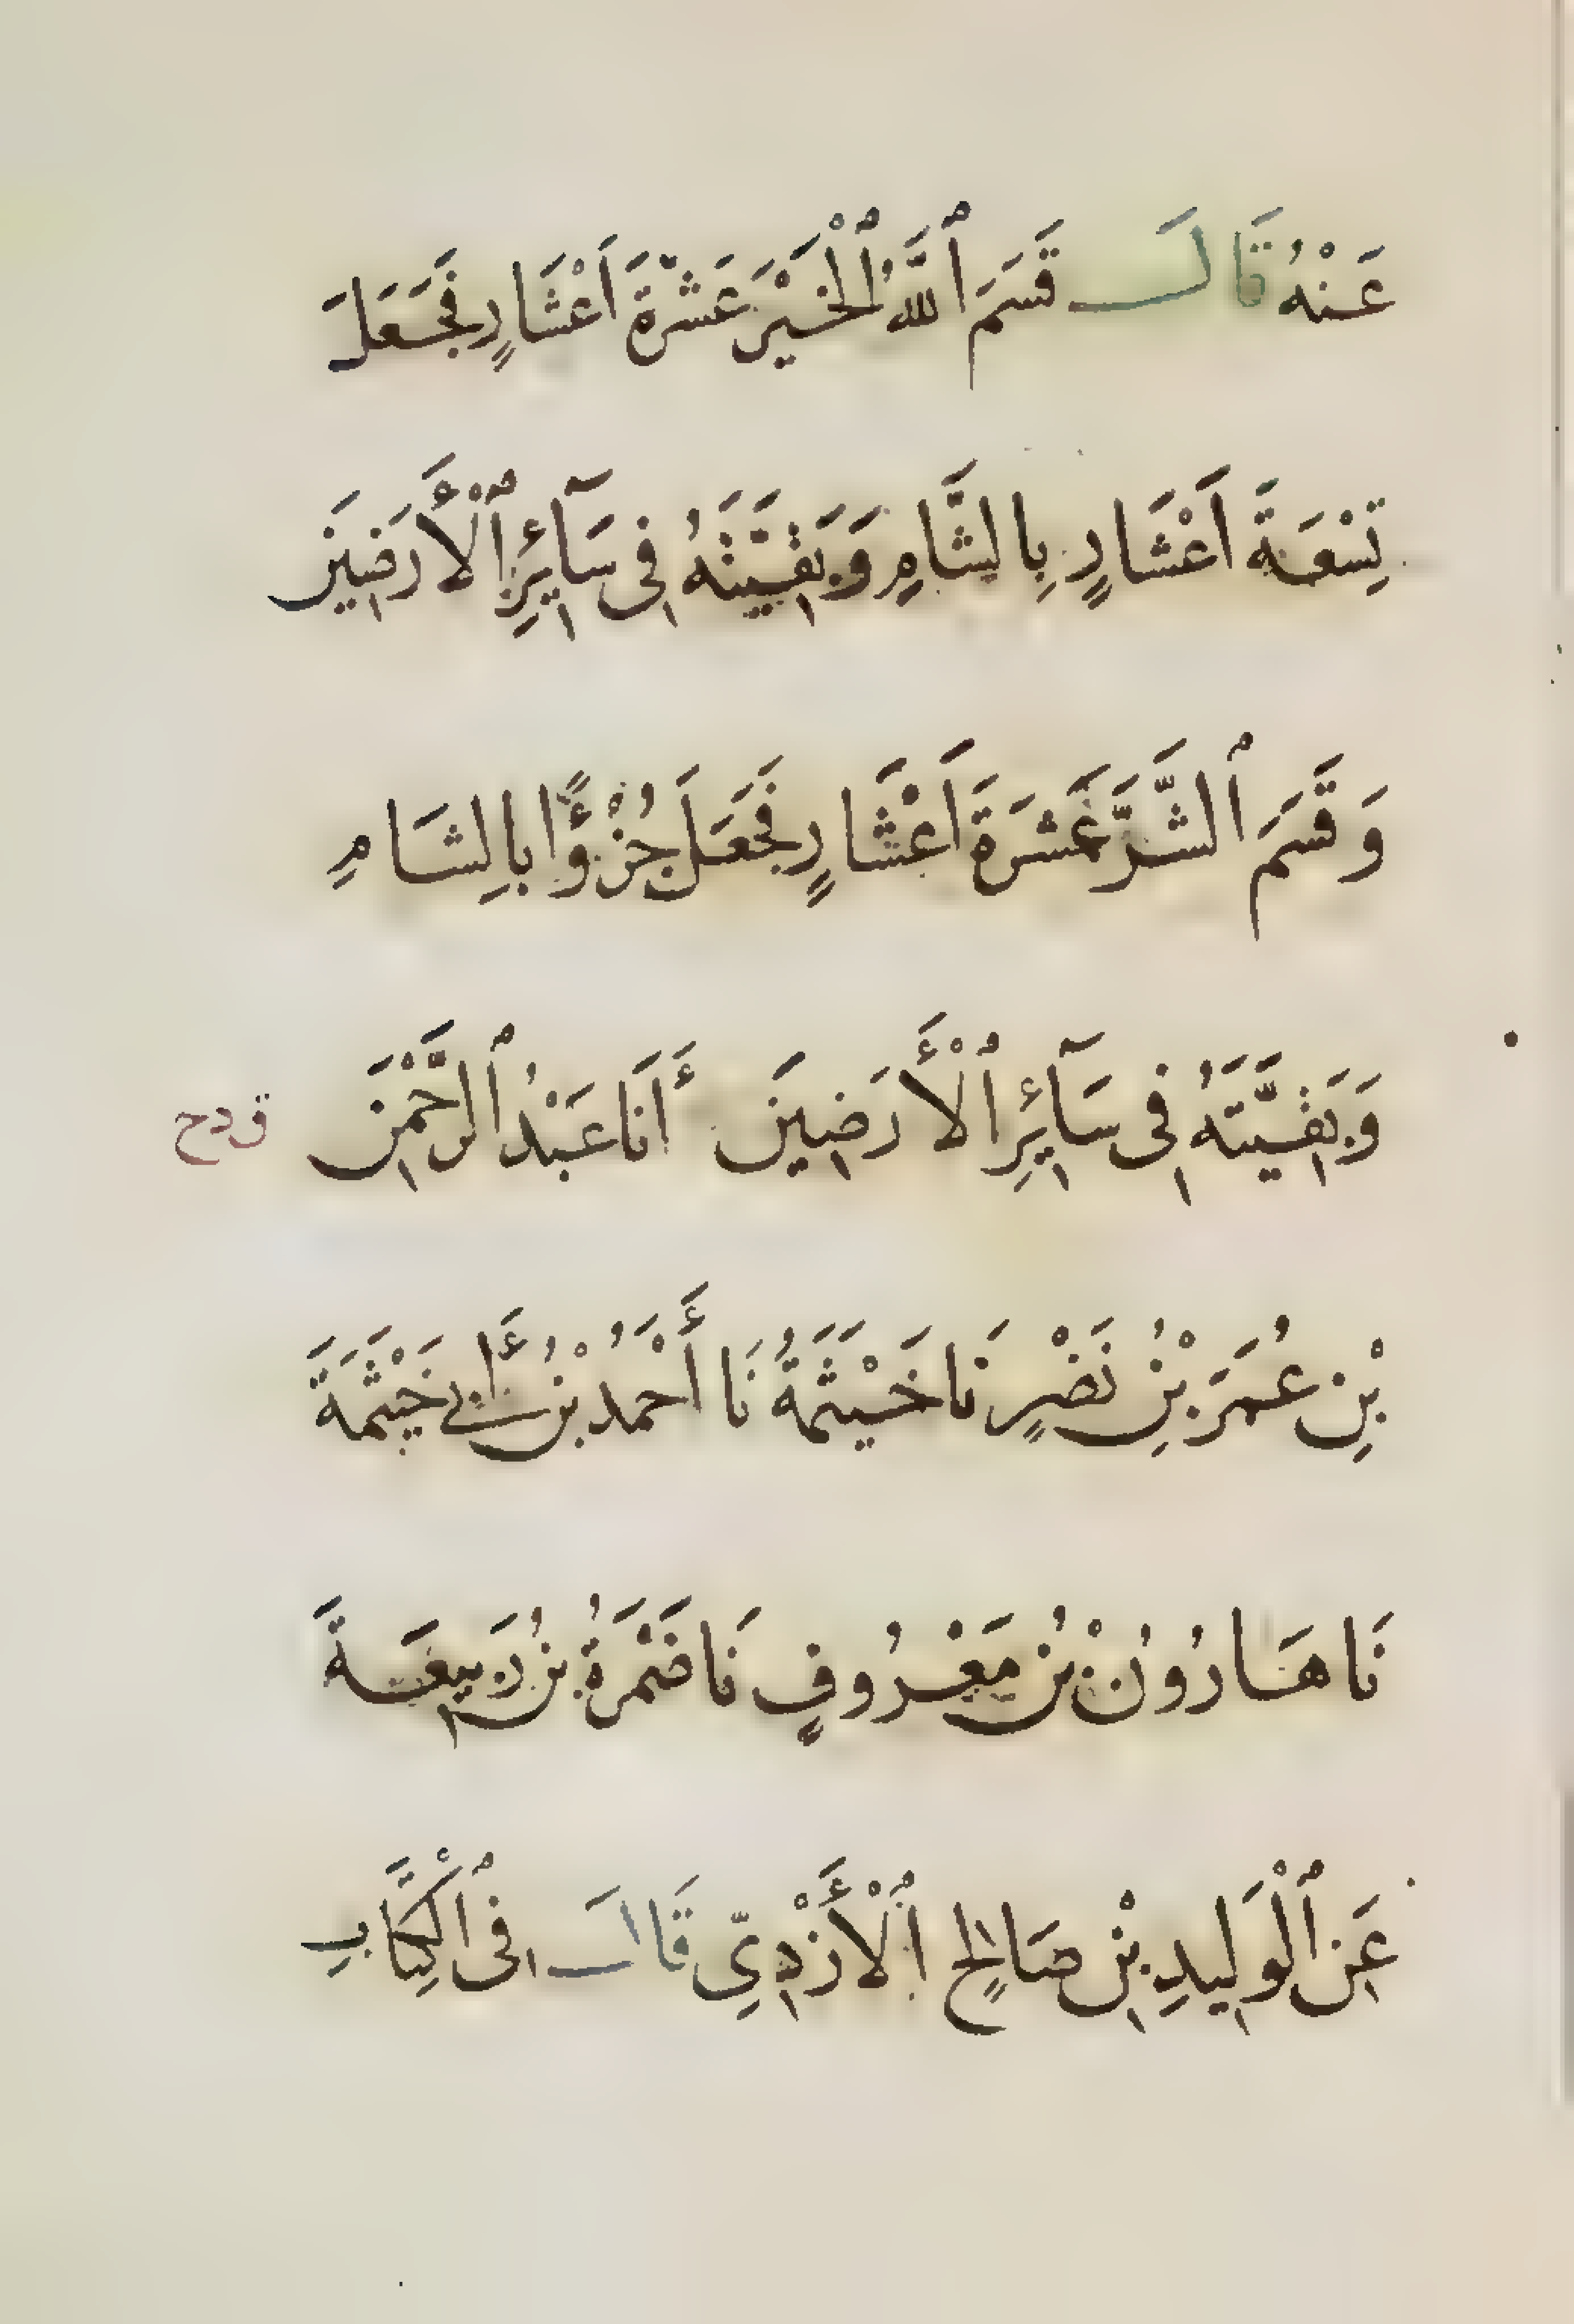 عَنْهُ قَالَ قَسَمَ ٱللَّهُ ٱلْخَيْرَ عَشَرَةَ اَعْشَارٍ فَجَعَلَ
تِسْعَةَ اَعْشَارٍ بِالشَّامِ وَبَقِيَّتَهُ فِى سَآئِرِ ٱلْأَرَضِينَ
وَقَسَمَ ٱلشَّرَّ عَشَرَةَ اَعْشَارٍ فَجَعَلَ جُزْؤًا بِالشَامِ
وَبَقِيَّتَهُ فِى سَآئِرِ ٱلْأَرَضِينَ أَنَا عَبْدُ ٱلرَّحْمَٰنِ
ق د ح
بْنِ عُمَرَ بْنِ نَصْرٍ نَا خَيْثَمَةُ نَا أَحْمَدُ بْنُ أَبِي خَيْثَمَةَ
نَا هَارُونُ بْنُ مَعْرُوفٍ نَا ضَمْرَةُ بْنُ رَبِيعَةَ
عَنِ ٱلْوَلِيدِ بْنِ صَالِحٍ ٱلْأَزْدِيِّ قَالَ فِى ٱلْكِتَابِ